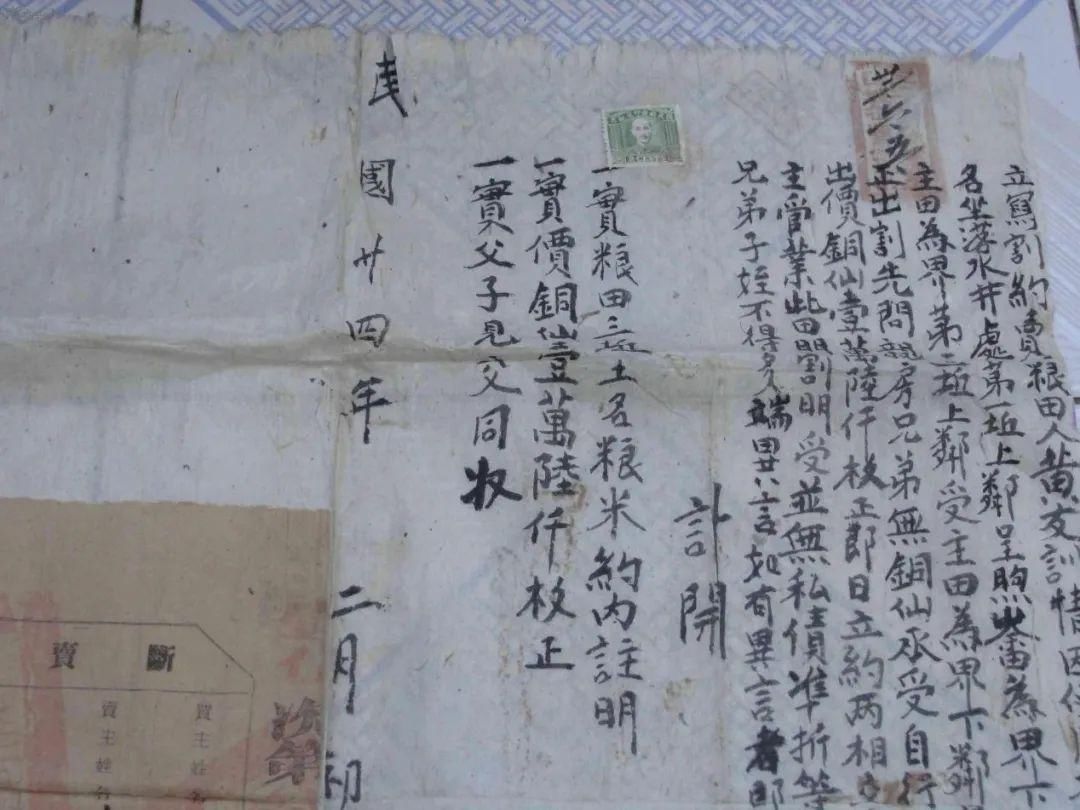 卅六五
立寫割約賣粮田人黃友訓情因
名坐落水井處第一坵上鄰呈煦崙為界下
主田為界第二坵上鄰受主田為界下鄰
正出割先問親房兄弟無銅仙承受自行
出價銅仙壹萬陸仟枚正即日立約两相
主管業此田割明受並無私債准折等
兄弟子姪不得多端異言如有異言者即
計開
一實粮田三坵土名粮米約内註明
一實價銅仙壹萬陸仟枚正
一實父子見交同收
民國廿四年 二月初
斷賣
買主姓名
賣主姓名